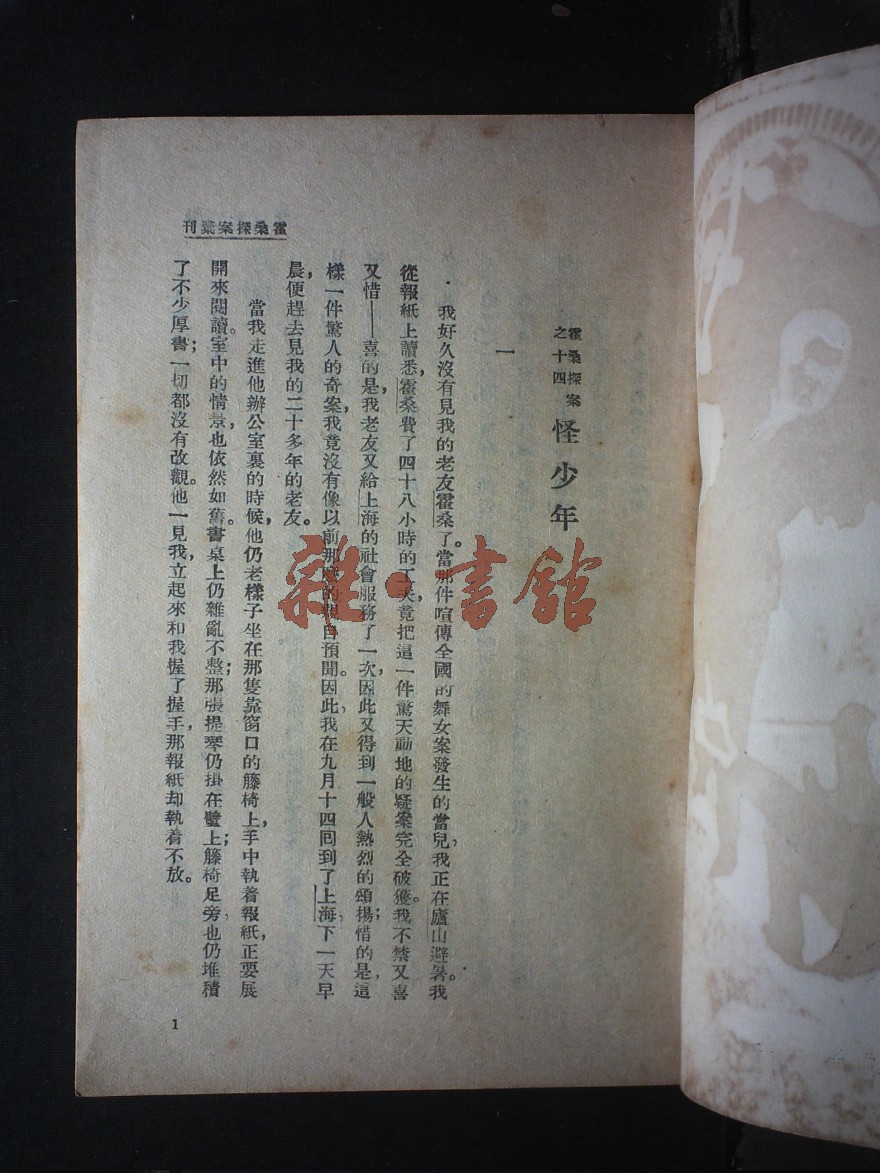 霍桑探案彙刊
霍桑探案
之十四
怪少年
一
我好久沒有見我的老友霍桑了。當那件喧傳全國的舞女案發生的當兒，我正在廬山避暑。我
從報紙上讀悉，霍桑費了四十八小時的工夫，竟把這一件驚天動地的疑案完全破獲。我不禁又喜
又惜——喜的是，我老友又給上海的社會服務了一次，因此又得到一般人熱烈的頌揚；惜的是，這
樣一件驚人的奇案，我竟沒有像以前那麼的親自預聞。因此，我在九月十四回到了上海，下一天早
晨，便趕去見我的二十多年的老友。
當我走進他辦公室裏的時候，他仍老樣子坐在那隻靠窗口的籐椅上，手中執着報紙，正要展
開來閱讀。室中的情景，也依然如舊。書桌上仍雜亂不整；那張提琴仍掛在壁上；籐椅足旁，也仍堆積
了不少厚書；一切都沒有改觀。他一見我，立起來和我握了握手，那報紙却執着不放。
1
雜·書館